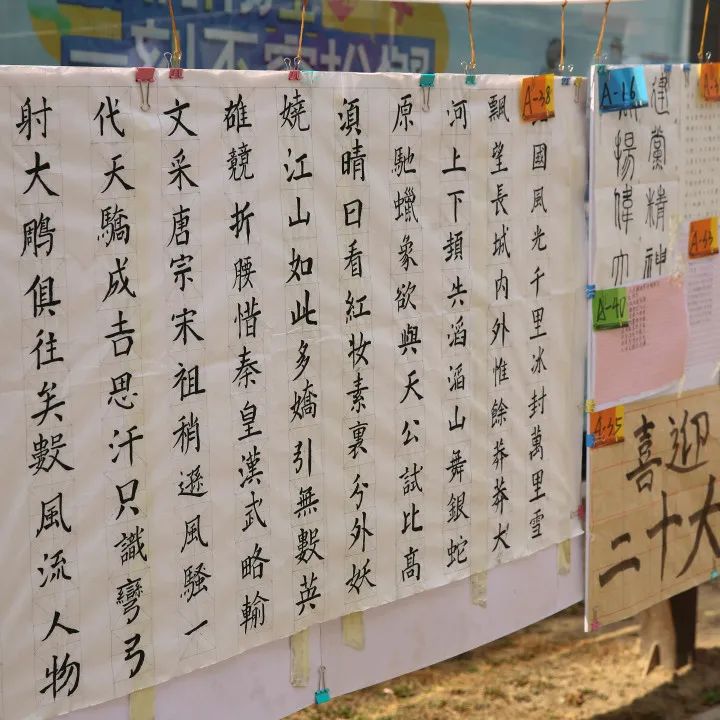 A-38
國風光千里冰封萬里雪
飄望長城内外惟餘莽莽大
河上下頓失滔滔山舞銀蛇
原馳蠟象欲與天公試比高
須晴日看紅妝素裏分外妖
嬈江山如此多嬌引無數英
雄競折腰惜秦皇漢武略輸
文采唐宗宋祖稍遜風騷一
代天驕成吉思汗只識彎弓
射大鵰俱往矣數風流人物
建黨精神
揚偉大
A-33
A-40
A-35
喜迎
二十大